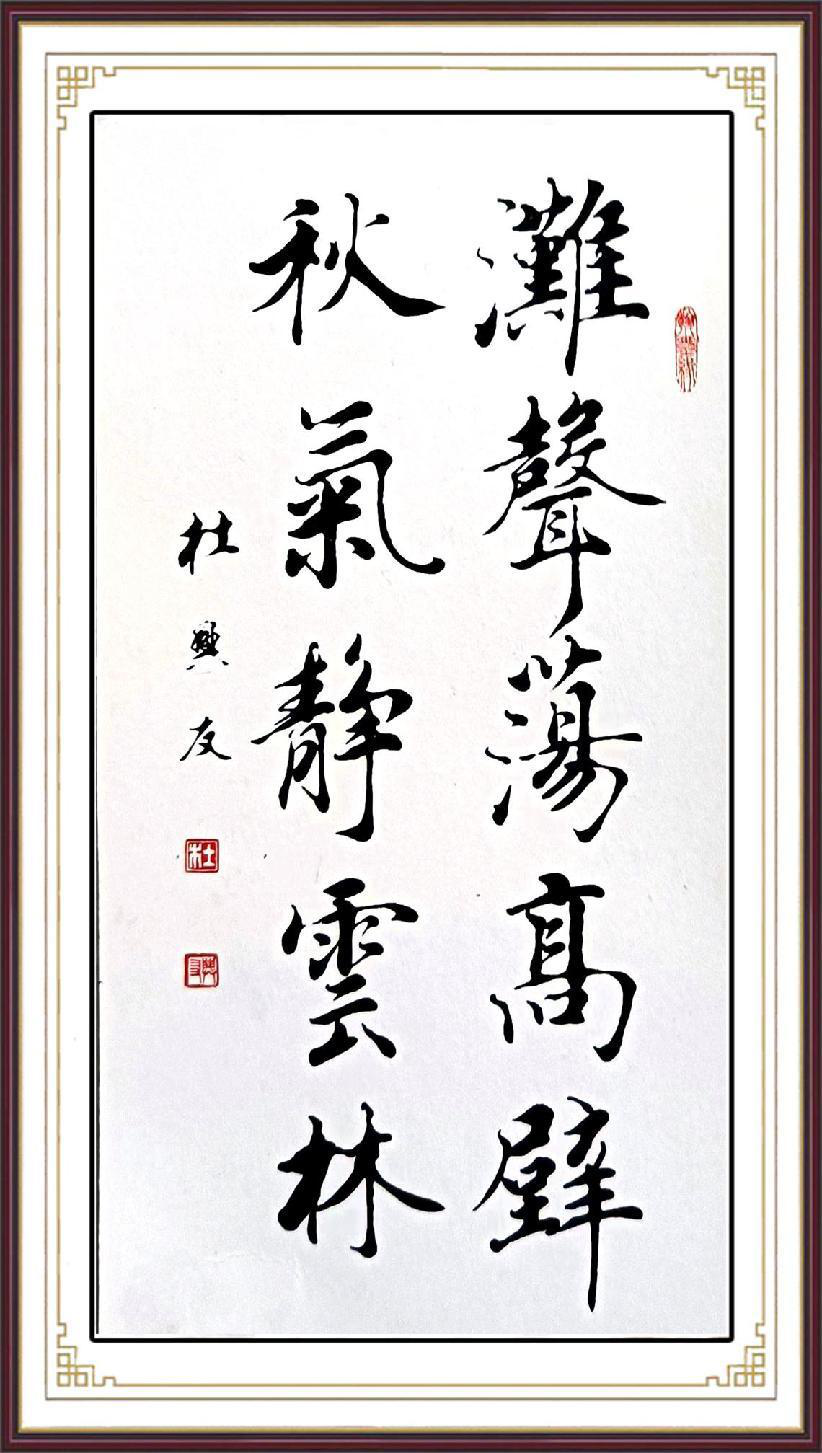 灘聲蕩高壁
秋氣靜雲林
杜興友
杜
興友